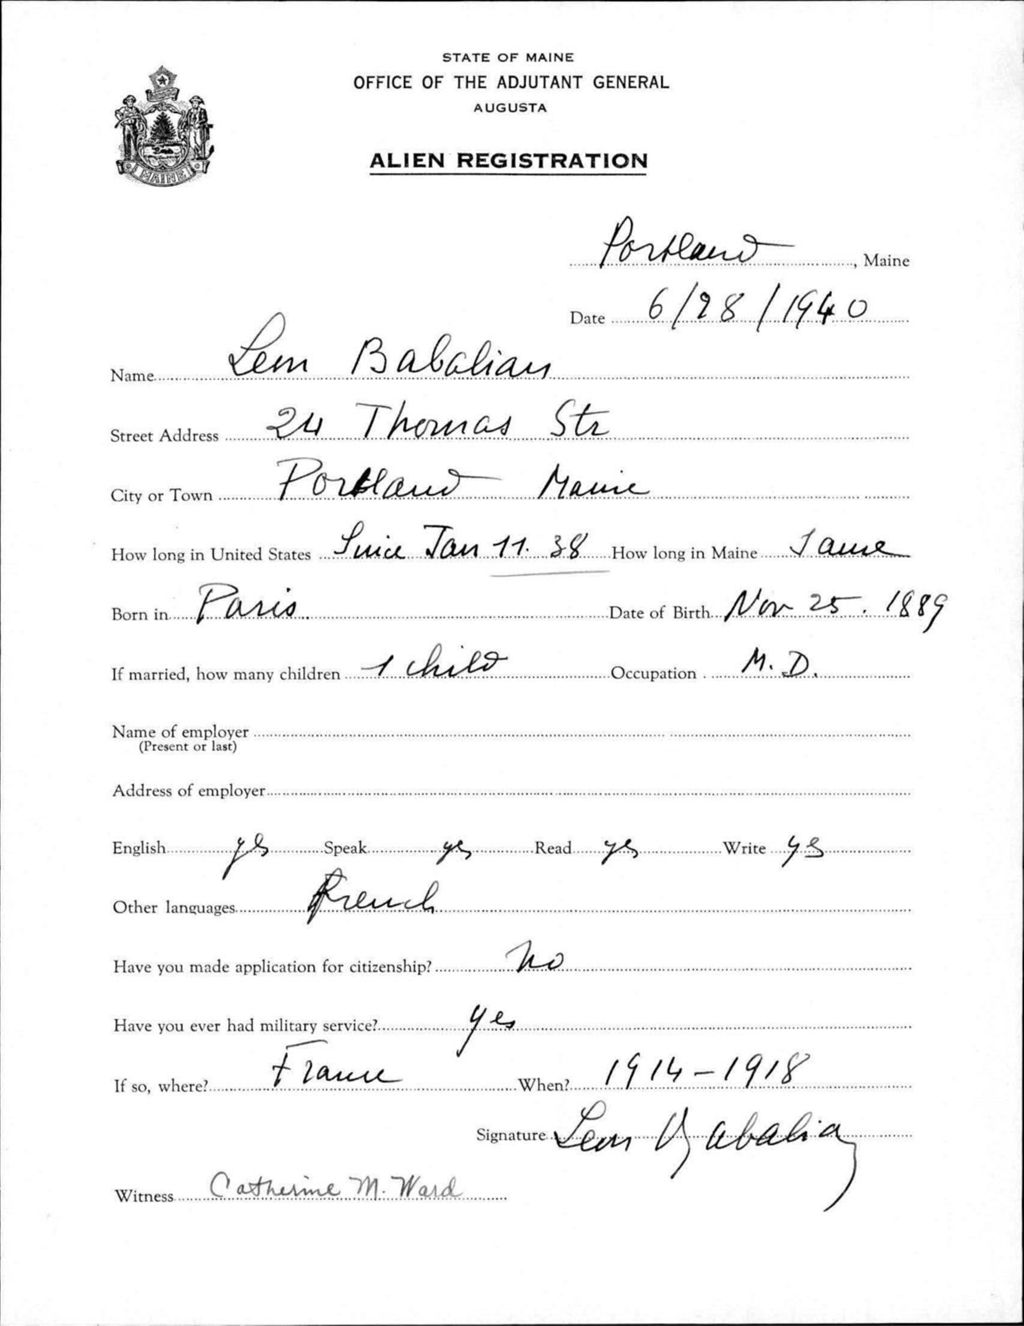 STATE OF MAINE
OFFICE OF THE ADJUTANT GENERAL
AUGUSTA
ALIEN REGISTRATION
MAINE
Portland, Maine
Date 6/28/1940
Name Leon Babalian
Street Address 24 Thomas Str
City or Town Portland Maine
How long in United States Since Jan 11. 38 How long in Maine Same
Born in Paris. Date of Birth Nov 25. 1889
If married, how many children 1 child Occupation M. D.
Name of employer
(Present or last)
Address of employer
English yes Speak yes Read yes Write yes
Other languages French
Have you made application for citizenship? No
Have you ever had military service? yes
If so, where? France When? 1914-1918
Signature Leon Babalian
Witness Catherine M. Ward